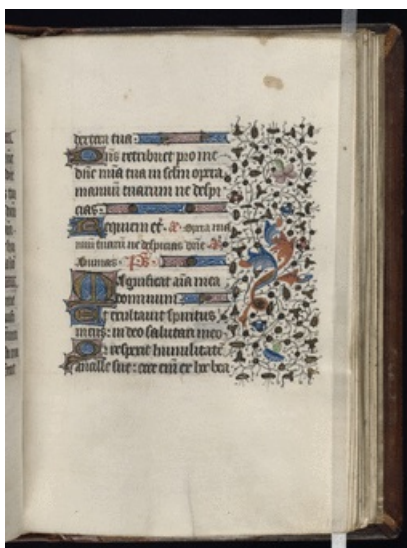 dextera tua.
Dñs retribuet pro me
dñe mĩa tua in sclm opera
manuum tuarum ne despi
cias.
Requiem et̃. a. Opera ma
nuũ tuarũ ne despicias dñe. a.
Omnas. ps.
Magnificat aĩa mea
dominum
Et exultauit spiritus
meus: in deo salutari meo.
Quia respexit humilitatẽ
ancille sue: ecce eñi ex hoc bea